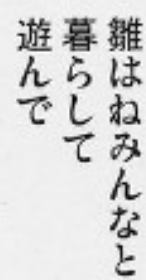 雛はねみんなと
暮らして
遊んで